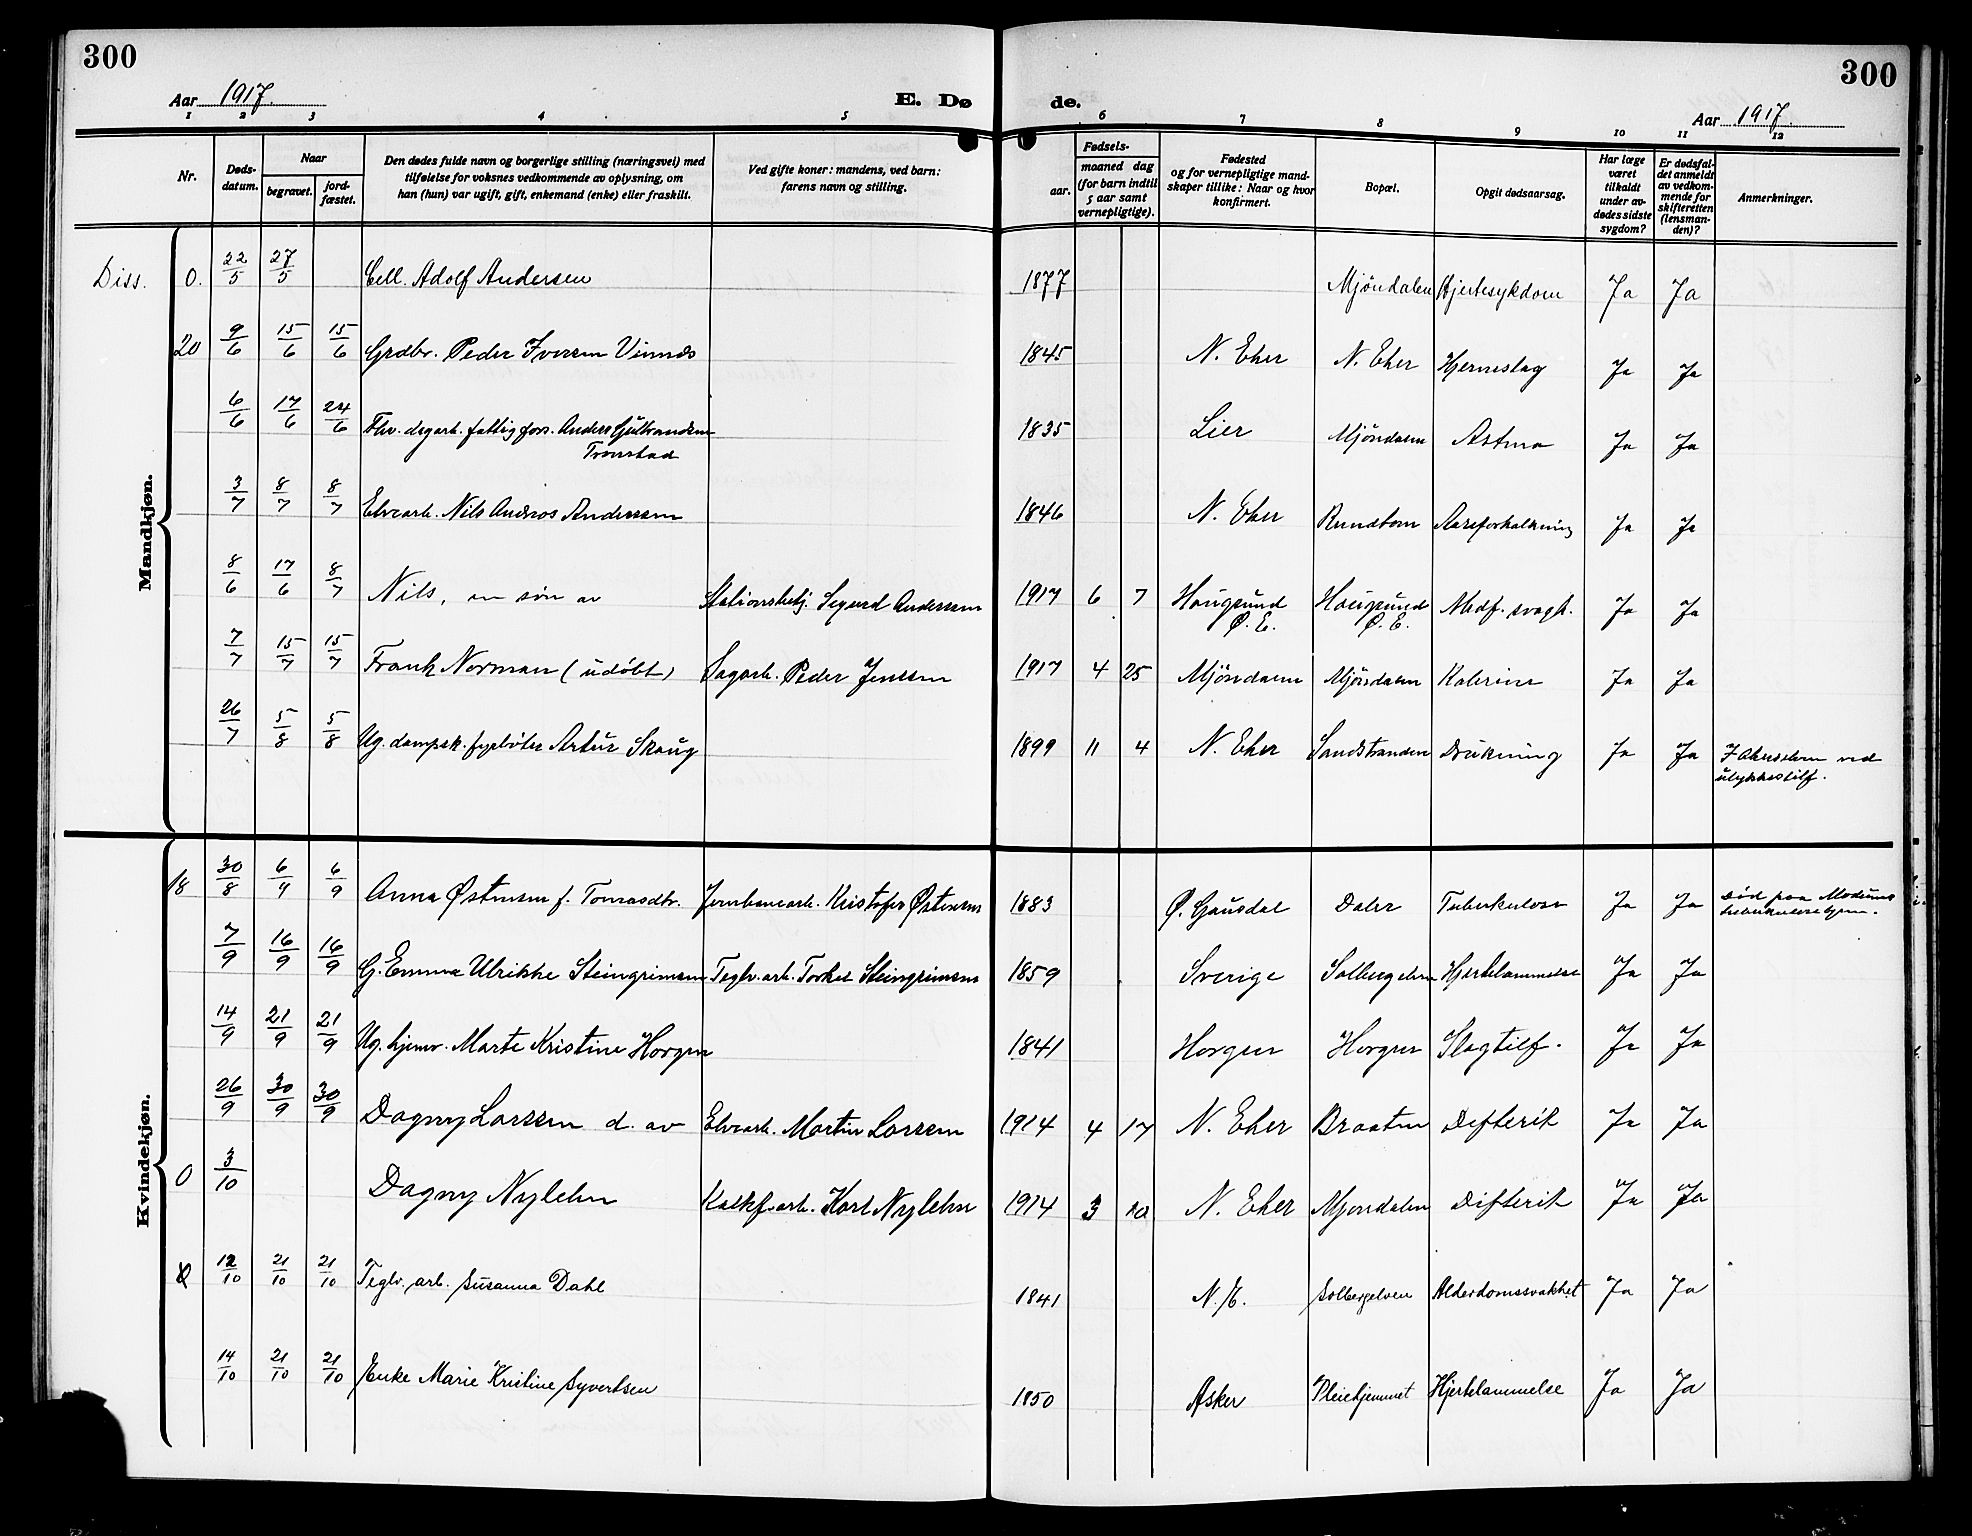 300
300
Aar 1917.
E. Dø
de.
Aar 1917.
1 2 3 4 5 6 7 8 9 10 11 12
Nr.
Døds-
datum.
Naar
begravet.
jord-
fæstet.
Den dødes fulde navn og borgerlige stilling (næringsvei) med
tilføielse for voksnes vedkommende av oplysning, om
han (hun) var ugift, gift, enkemand (enke) eller fraskilt.
Ved gifte koner: mandens, ved barn:
farens navn og stilling.
Fødsels-
aar.
maaned dag
(for barn indtil
5 aar samt
vernepligtige).
Fødested
og for vernepligtige mand-
skaper tillike: Naar og hvor
konfirmert.
Bopæl.
Opgit dødsaarsag.
Har læge
været
tilkaldt
under av-
dødes sidste
sygdom?
Er dødsfal-
det anmeldt
av vedkom-
mende for
skifteretten
(lensman-
den)?
Anmerkninger.
Mandkjøn.
Diss. 0. 22/5 27/5 Cell. Adolf Andersen 1877 Mjöndalen Hjertesykdom Ja Ja
20 9/6 15/6 15/6 Grdbr. Peder Iversen Vinnæs 1845 N. Eker N. Eker Hjerneslag Ja Ja
6/6 17/6 24/6 Fhv. dagarb. fattig fors. Anders Gulbrandsen
Tronstad 1835 Lier Mjöndalen Astma Ja Ja
3/7 8/7 8/7 Elvearb. Nils Andersen 1846 N. Eker Rundtom Aareforkalkning Ja Ja
8/6 17/6 8/7 Nils, en søn av Stationsbetj. Sigurd Anderssen 1917 6 7 Hougsund
Ø. E. Hougsund
Ø. E. Medf. svagh. Ja Ja
7/7 15/7 15/7 Frank Norman (udöbt) Sagarb. Peder Jenssen 1917 4 25 Mjöndalen Mjöndalen Kolerine Ja Ja
26/7 5/8 5/8 Ug. dampsk. fyrbøter Artur Skoug 1899 11 4 N. Eker Sandstranden Drukning Ja Ja I Akerselven ved
ulykkestilf.
Kvindekjøn.
18 30/8 6/9 6/9 Anna Østensen f. Tomasdtr. Jernbanearb. Kristofer Østensen 1883 Ø. Gausdal Daler Tuberkulose Ja Ja Død paa Modums
tuberkulosehjem.
7/9 16/9 16/9 G. Emma Ulrikke Steingrimsen Teglv. arb. Torkel Steingrimsen 1859 Sverige Solbergelven Hjertelammelse Ja Ja
14/9 21/9 21/9 Ug. hjemv. Marte Kristine Horgen 1841 Horgen Horgen Slagtilf. Ja Ja
26/9 30/9 30/9 Dagny Larssen d. av Elvearb. Martin Larssen 1914 4 17 N. Eker Braaten Difterit Ja Ja
0 3/10 Dagny Nylehn Kalkf. arb. Karl Nylehn 1914 3 10 N. Eker Mjöndalen Difterit Ja Ja
12/10 21/10 21/10 Teglv. arb. Susanna Dahl 1841 N. E. Solbergelven Alderdomssvakhet Ja Ja
14/10 21/10 21/10 Enke Marie Kristine Syvertsen 1850 Asker Pleiehjemmet Hjertelammelse Ja Ja